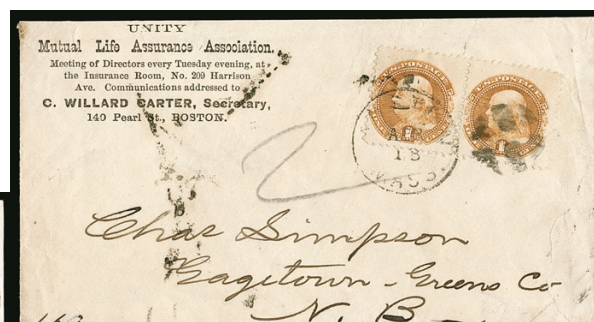 UNITY
Mutual Life Assurance Association.
Meeting of Directors every Tuesday evening, at
the Insurance Room, No. 209 Harrison
Ave. Communications addressed to
C. WILLARD CARTER, Secretary,
140 Pearl St., BOSTON.
U.S. POSTAGE
1
APR
18
MASS.
1
Chas Simpson
Gagetown - Greens Co
N. B